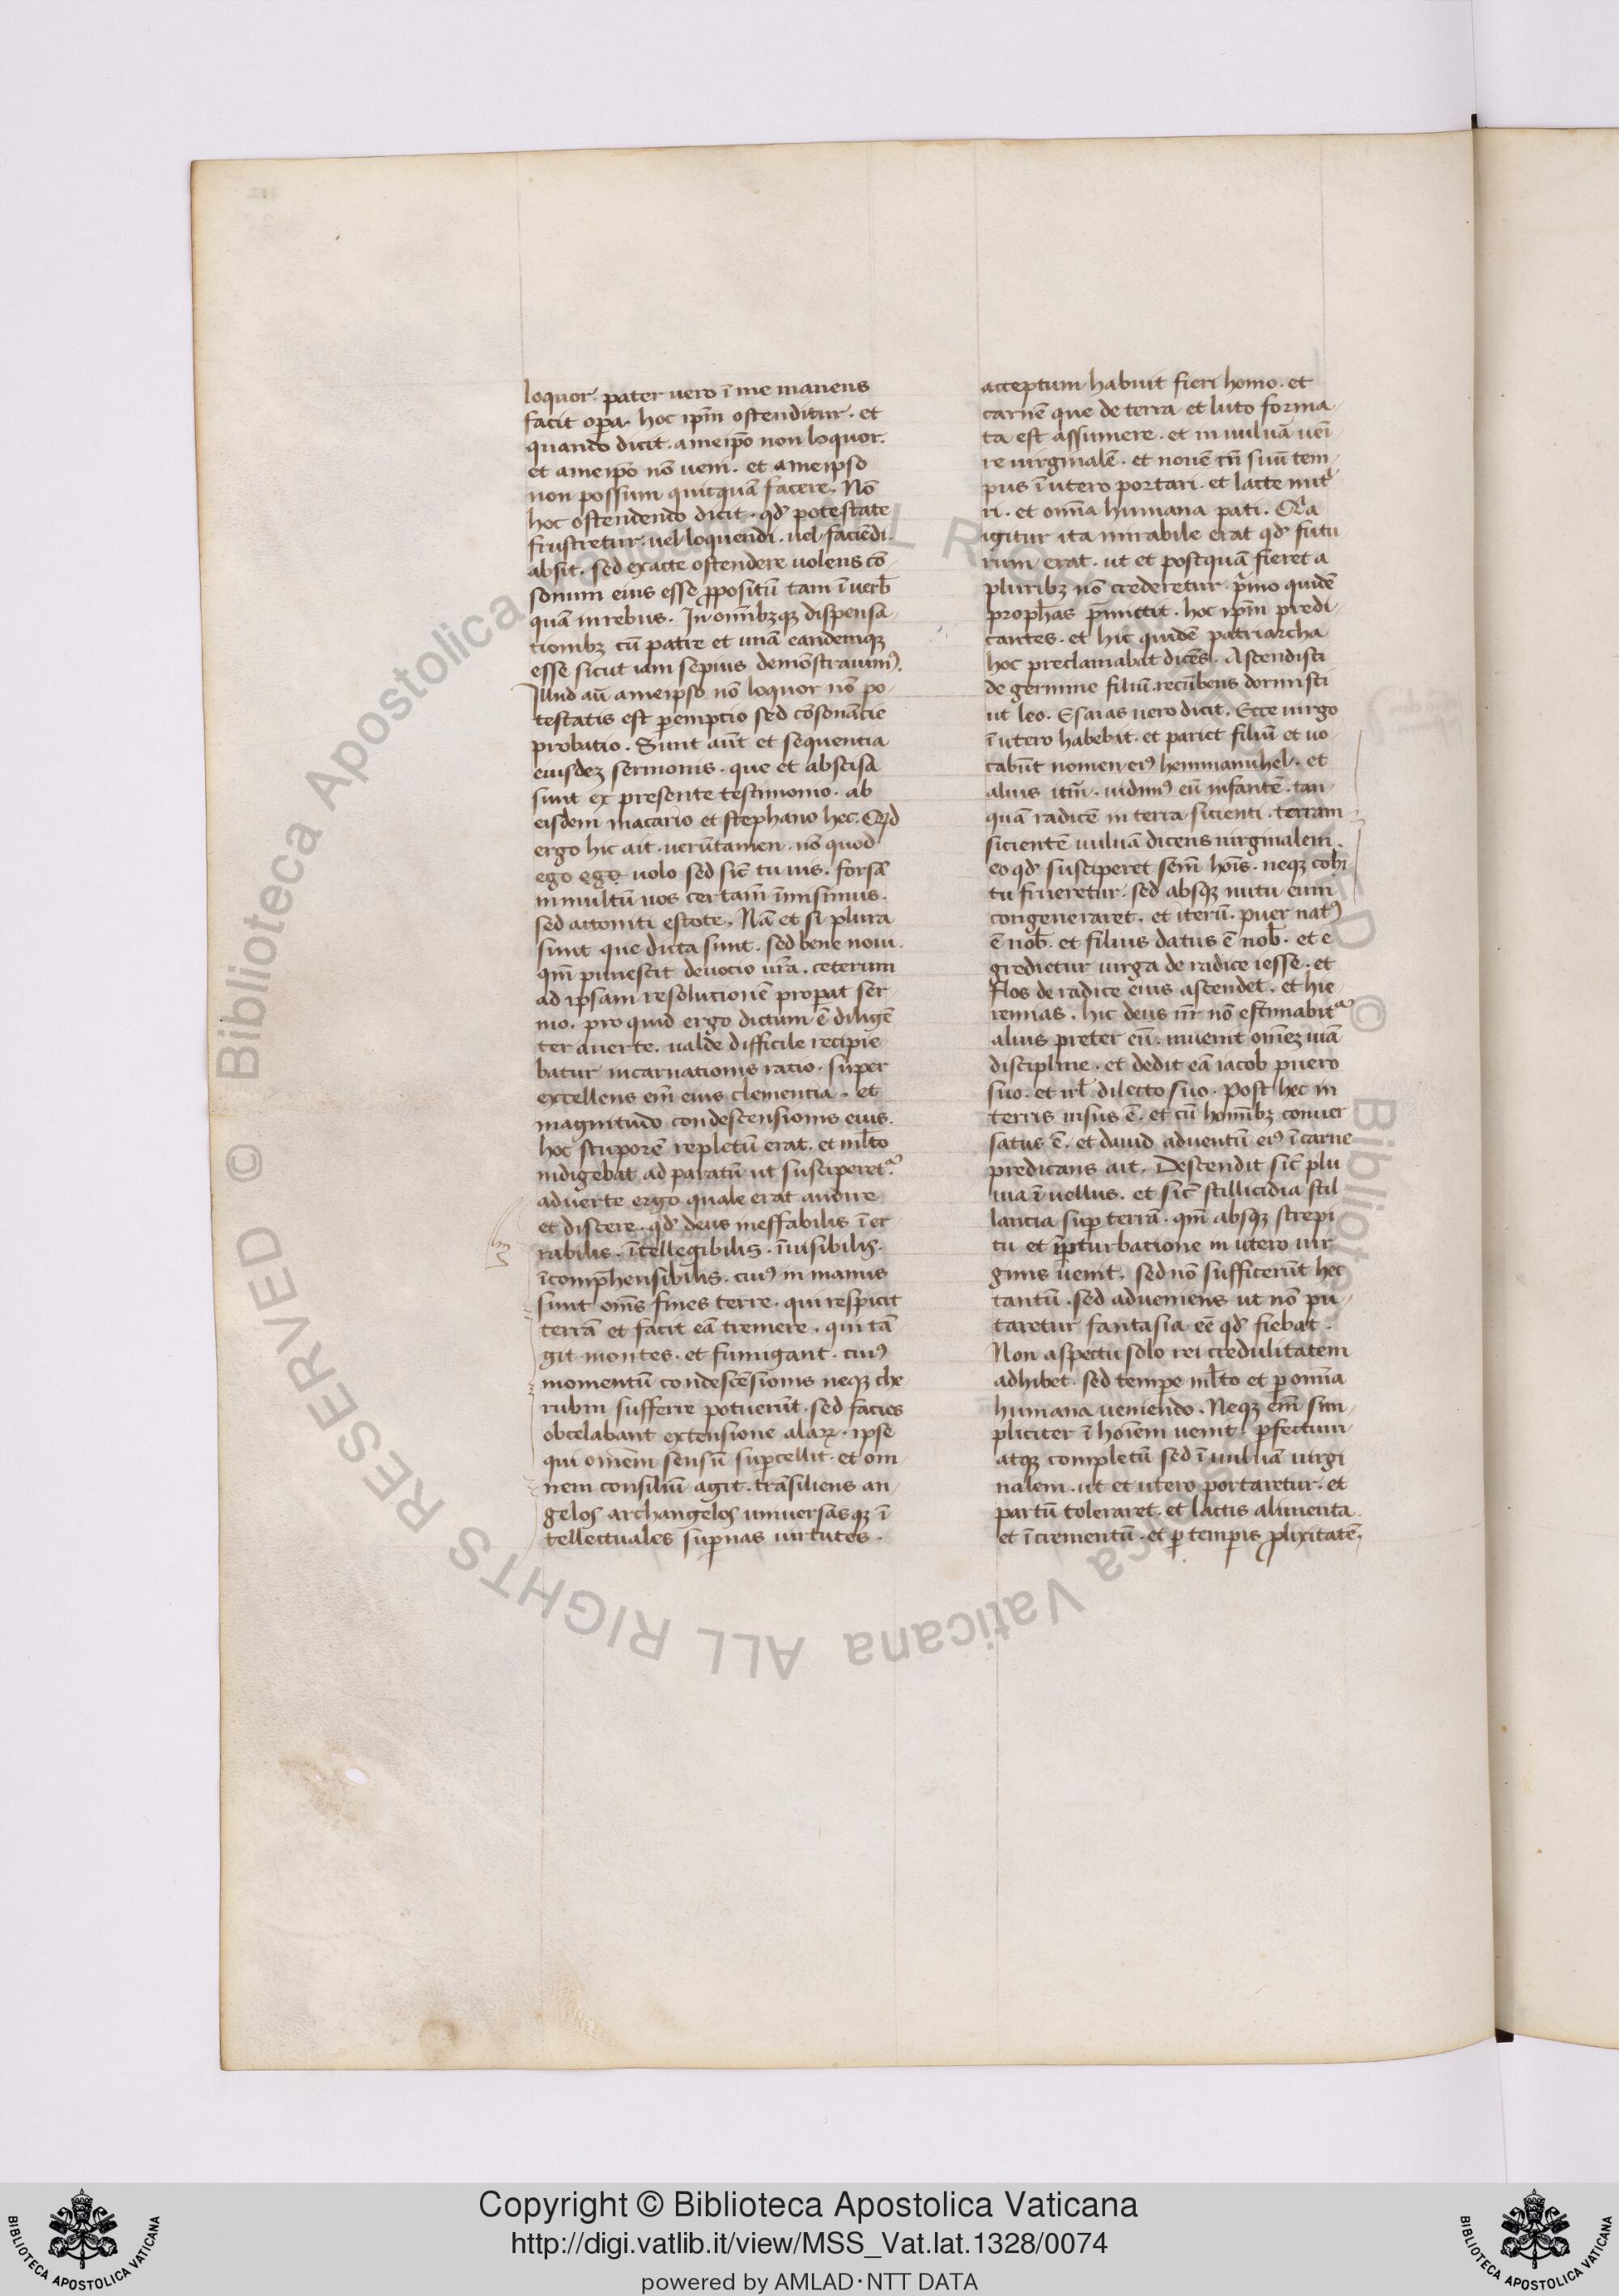 loquor. pater uero ī me manens
facit oꝑa. hoc ipm̄ ostenditur. et
quando dicit. ameip̄o non loquor.
et ameip̄o nō ueni. et ameipso
non possum quicquā facere. Nō
hoc ostendendo dicit. qd̄ potestate
frustretur. uel loquendi. uel faciēdi.
absit. sed exacte ostendere uolens cō
sonum eius esse ꝓpositū tam ī uerb̄
quā in rebus. In omībꝫqꝫ dispensa
tionibꝫ cū patre et unā eandemqꝫ
esse sicut iam sepius demōstrauimꝰ.
Illud aū ameipso nō loquor nō po
testatis est ꝑemptio sed cōsonācie
probatio. Sunt aūt et sequentia
eiusdeꝫ sermonis. que et abscisa
sunt ex presente testimonio. ab
eisdem macario et stephano hec. Qd
ergo hic ait. uerūtamen. nō quod
ego ego uolo sed sic̄ tu uis. forsā
in multū uos certam̄ īmisimus.
sed attoniti estote. Nā et si plura
sunt que dicta sunt. sed bene noui.
qm̄ punescit deuocio ur̄a. ceterum
ad ipsam resolucionē properat ser
mo. pro quid ergo dictum ē diligē
ter auerte. ualde difficile recipie
batur incarnationis ratio. super
excellens em̄ eius clementia. et
magnitudo condescensionis eius.
hoc stuporē repletū erat. et ml̄to
indigebat ad paratū ut susciperet᷑.
aduerte ergo quale erat audire
et discere. qd̄ deus ineffabilis ī er
rabilis. ītellegibilis. īuisibilis.
īcomp̄hensibilis. cuiꝰ in manus
sunt om̄s fines terre. qui respicit
terrā et facit eā tremere. qui tā
git montes. et fumigant. cuiꝰ
momentū condescēsionis neqꝫ che
rubin sufferre potuerūt. sed facies
obcelabant extensione alaꝝ. ipse
qui omēm sensū suꝑcellit. et om
nem consiliū agit. trāsiliens an
gelos archangelos uniuersasqꝫ ī
tellectuales suꝑnas uirtutes.
acceptum habuit fieri homo. et
carnē que de terra et luto forma
ta est assumere. et in uuluā uei
re uirginalē. et nouē m̄ suū tem
pus ī utero portari. et lacte nut̾
ri. et omīa humana pati. Qa
igitur ita mirabile erat qd̄ futu
rum erat. ut et postquā fieret a
pluribꝫ nō crederetur. p̾mo quidē
proph̄as p̄mittit. hoc ipm̄ predi
cantes. et hic quidē patriarcha
hoc preclamabat dicēs. Ascendisti
de germine filiū. recūbens dormisti
ut leo. Esaias uero dicit. Ecce uirgo
ī utero habebit. et pariet filiū et uo
cabūt nomen eiꝰ hemmanuhel. et
alius itm̄. uidimꝰ eū infantē. tan
quā radicē in terra sicienti. terram
sicientē uuluā dicens uirginalem.
eo qd̄ susciperet sem̄ hoīs. neqꝫ cohi
tu frueretur. sed absqꝫ nutu eum
congeneraret. et iterū. puer natꝰ
ē nob̄. et filius datus ē nob̄. et e
gredietur uirga de radice iesse. et
flos de radice eius ascendet. et hie
remias. hic deus nr̄ nō estimabit᷑
alius preter eū. inuenit omēꝫ uiā
discipline. et dedit eā iacob puero
suo. et irl̄ dilecto suo. Post hec in
terris uisus ē. et cū homībꝫ conuer
satus ē. et dauid aduentū eiꝰ ī carne
predicans ait. Descendit sic̄ plu
uia ī uellus. et sic̄ stillicidia stil
lancia suꝑ terrā. qm̄ absqꝫ strepi
tu et īꝑturbacione in utero uir
ginis uenit. sed nō sufficerūt hec
tantū. sed adueniens ut nō pu
taretur fantasia eē qd̄ fiebat.
Non aspectu solo rei credulitatem
adhibet. sed tempe ml̄to et ꝑ omīa
humana ueniendo. Neqꝫ em̄ sim
pliciter ī hoīem uenit ꝑfectum
atqꝫ completū sed ī uuluā uirgi
nalem. ut et utero portaretur. et
partū toleraret. et lactis alimenta.
et īcrementū. et ꝑ temꝑis ꝓlixitatē.
© Biblioteca Apostolica Vaticana ALL RIGHTS RESERVED
Copyright © Biblioteca Apostolica Vaticana
http://digi.vatlib.it/view/MSS_Vat.lat.1328/0074
powered by AMLAD·NTT DATA
BIBLIOTECA APOSTOLICA VATICANA
BIBLIOTECA APOSTOLICA VATICANA